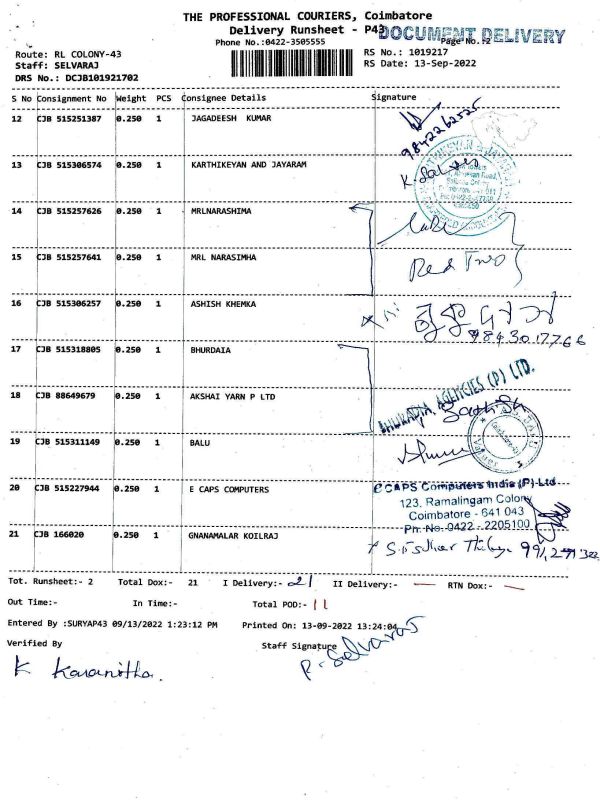 THE PROFESSIONAL COURIERS, Coimbatore
Delivery Runsheet - P43
DOCUMENT DELIVERY
Phone No.:0422-3505555
Page No.:2
Route: RL COLONY-43
RS No.: 1019217
Staff: SELVARAJ
RS Date: 13-Sep-2022
DRS No.: DCJB101921702
S No Consignment No Weight PCS Consignee Details Signature
12 CJB 515251387 0.250 1 JAGADEESH KUMAR
9842262525
13 CJB 515306574 0.250 1 KARTHIKEYAN AND JAYARAM
14 CJB 515257626 0.250 1 MRLNARASHIMA
15 CJB 515257641 0.250 1 MRL NARASIMHA
16 CJB 515306257 0.250 1 ASHISH KHEMKA
9843017766
17 CJB 515318805 0.250 1 BHURDAIA
BHURADIA AGENCIES (P) LTD.
18 CJB 88649679 0.250 1 AKSHAI YARN P LTD
19 CJB 515311149 0.250 1 BALU
20 CJB 515227944 0.250 1 E CAPS COMPUTERS
eCAPS Computers India (P) Ltd
123, Ramalingam Colony
Coimbatore - 641 043
Ph. No. 0422 - 2205100
21 CJB 166020 0.250 1 GNANAMALAR KOILRAJ
Tot. Runsheet:- 2 Total Dox:- 21 I Delivery:- 21 II Delivery:- — RTN Dox:- —
Out Time:- In Time:- Total POD:- 11
Entered By :SURYAP43 09/13/2022 1:23:12 PM Printed On: 13-09-2022 13:24:04
Verified By Staff Signature
P. Selvaraj